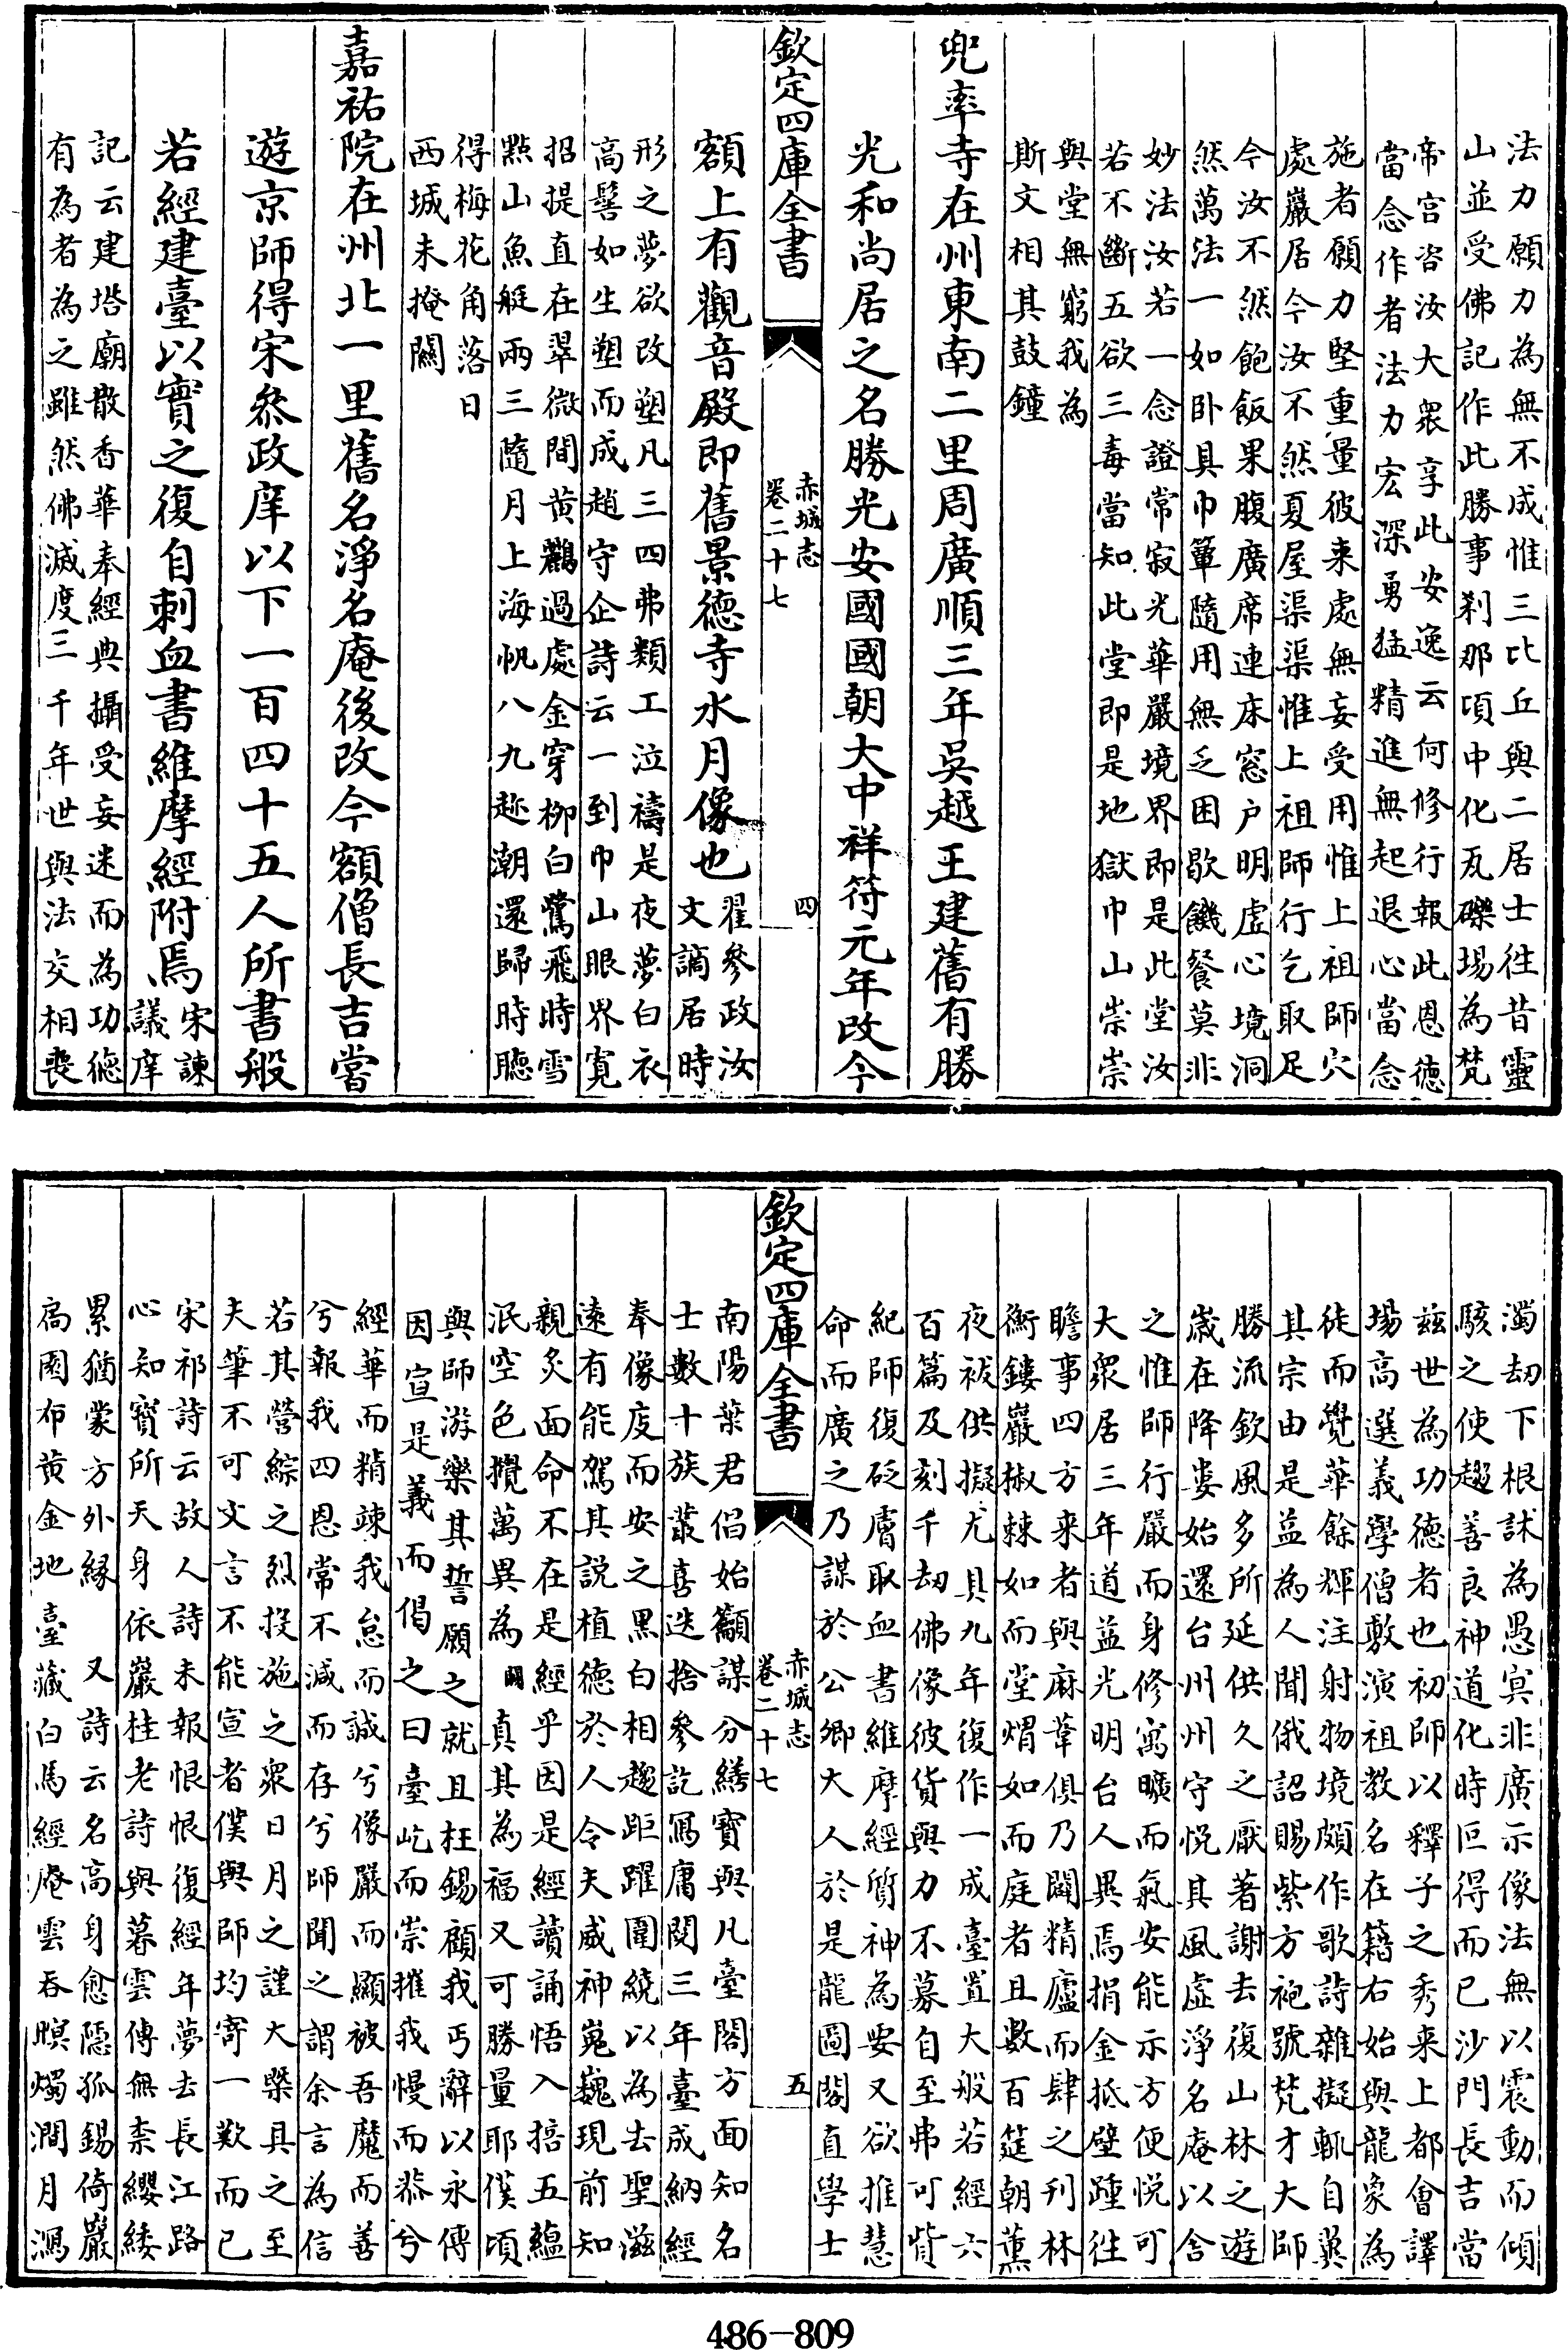 法力願力為無不成惟三比丘與二居士往昔靈
山並受佛記作此勝事刹那頃中化瓦礫場為梵
帝宫咨汝大衆享此安逸云何修行報此恩徳
當念作者法力宏深勇猛精進無起退心當念
施者願力堅重量彼来處無妄受用惟上祖師穴
處巖居今汝不然夏屋渠渠惟上祖師行乞取足
今汝不然飽飯果腹廣席連床窓户明虚心境洞
然萬法一如卧具巾簞隨用無乏困歇饑餐莫非
妙法汝若一念證常寂光華嚴境界即是此堂汝
若不斷五欲三毒當知此堂即是地獄巾山崇崇
與堂無窮我為
斯文相其鼓鐘
兜率寺在州東南二里周廣順三年吳越王建舊有勝
光和尚居之名勝光安國國朝大中祥符元年改今
欽定四庫全書
赤城志
卷二十七
四
額上有觀音殿即舊景德寺水月像也
翟參政汝
文謫居時
形之夢欲改塑凡三四弗類工泣禱是夜夢白衣
高髻如生塑而成趙守企詩云一到巾山眼界寛
招提直在翠微間黄鸝過處金穿柳白鷺飛時雪
點山魚艇兩三隨月上海帆八九趂潮還歸時聽
得梅花角落日
西城未掩關
嘉祐院在州北一里舊名淨名庵後改今額僧長吉嘗
遊京師得宋叅政庠以下一百四十五人所書般
若經建臺以實之復自刺血書維摩經附焉
宋諫
議庠
記云建塔廟散香華奉經典攝受妄迷而為功徳
有為者為之雖然佛滅度三千年世與法交相喪
濁刼下根訹為愚㝠非廣示像法無以震動而傾
駭之使趨善良神道化時叵得而已沙門長吉當
兹世為功德者也初師以釋子之秀来上都會譯
場高選義學僧敷演祖教名在籍右始與龍象為
徒而覺華餘輝注射物境頗作歌詩雜擬輒自巽
其宗由是益為人聞俄詔賜紫方袍號梵才大師
勝流欽風多所延供久之厭著謝去復山林之遊
嵗在降婁始還台州州守悦其風虚淨名庵以舍
之惟師行嚴而身修寓曠而氣安能示方便悦可
大衆居三年道益光明台人異焉捐金抵璧踵徃
瞻事四方来者與麻葦俱乃闢精廬而肆之刋林
衡鏤巖椒棘如而堂熠如而庭者且數百筵朝薰
夜祓供擬尤具九年復作一成臺置大般若經六
百篇及刻千刼佛像彼貨與力不募自至弗可訾
紀師復砭膚取血書維摩經質神為要又欲推慧
命而廣之乃謀於公卿大人於是龍圖閣直學士
欽定四庫全書
赤城志
卷二十七
五
南陽葉君倡始籲謀分繕寳與凡臺閣方面知名
士數十族叢喜迭捨參訖冩庸閱三年臺成納經
奉像度而安之黑白相趨距躍圍繞以為去聖滋
遠有能駕其説植德於人令夫威神嵬巍現前知
親炙面命不在是經乎因是經讀誦悟入掊五蘊
泯空色攬萬異為㒺真其為福又可勝量耶僕頃
與師游樂其誓願之就且枉錫顧我丐辭以永傳
因宣是義而偈之曰臺屹而崇摧我慢而恭兮
經華而精竦我怠而誠兮像嚴而顯被吾魔而善
兮報我四恩常不減而存兮師聞之謂余言為信
若其營綜之烈投施之衆日月之謹大槩具之至
夫筆不可文言不能宣者僕與師均寄一歎而已
宋祁詩云故人詩未報恨恨復經年夢去長江路
心知寳所天身依巖桂老詩與暮雲傳無柰纓緌
累猶蒙方外縁 又詩云名高身愈隱狐錫倚巖
扃園布黄金地臺藏白馬經庵雲吞暝燭澗月瀉
486-809